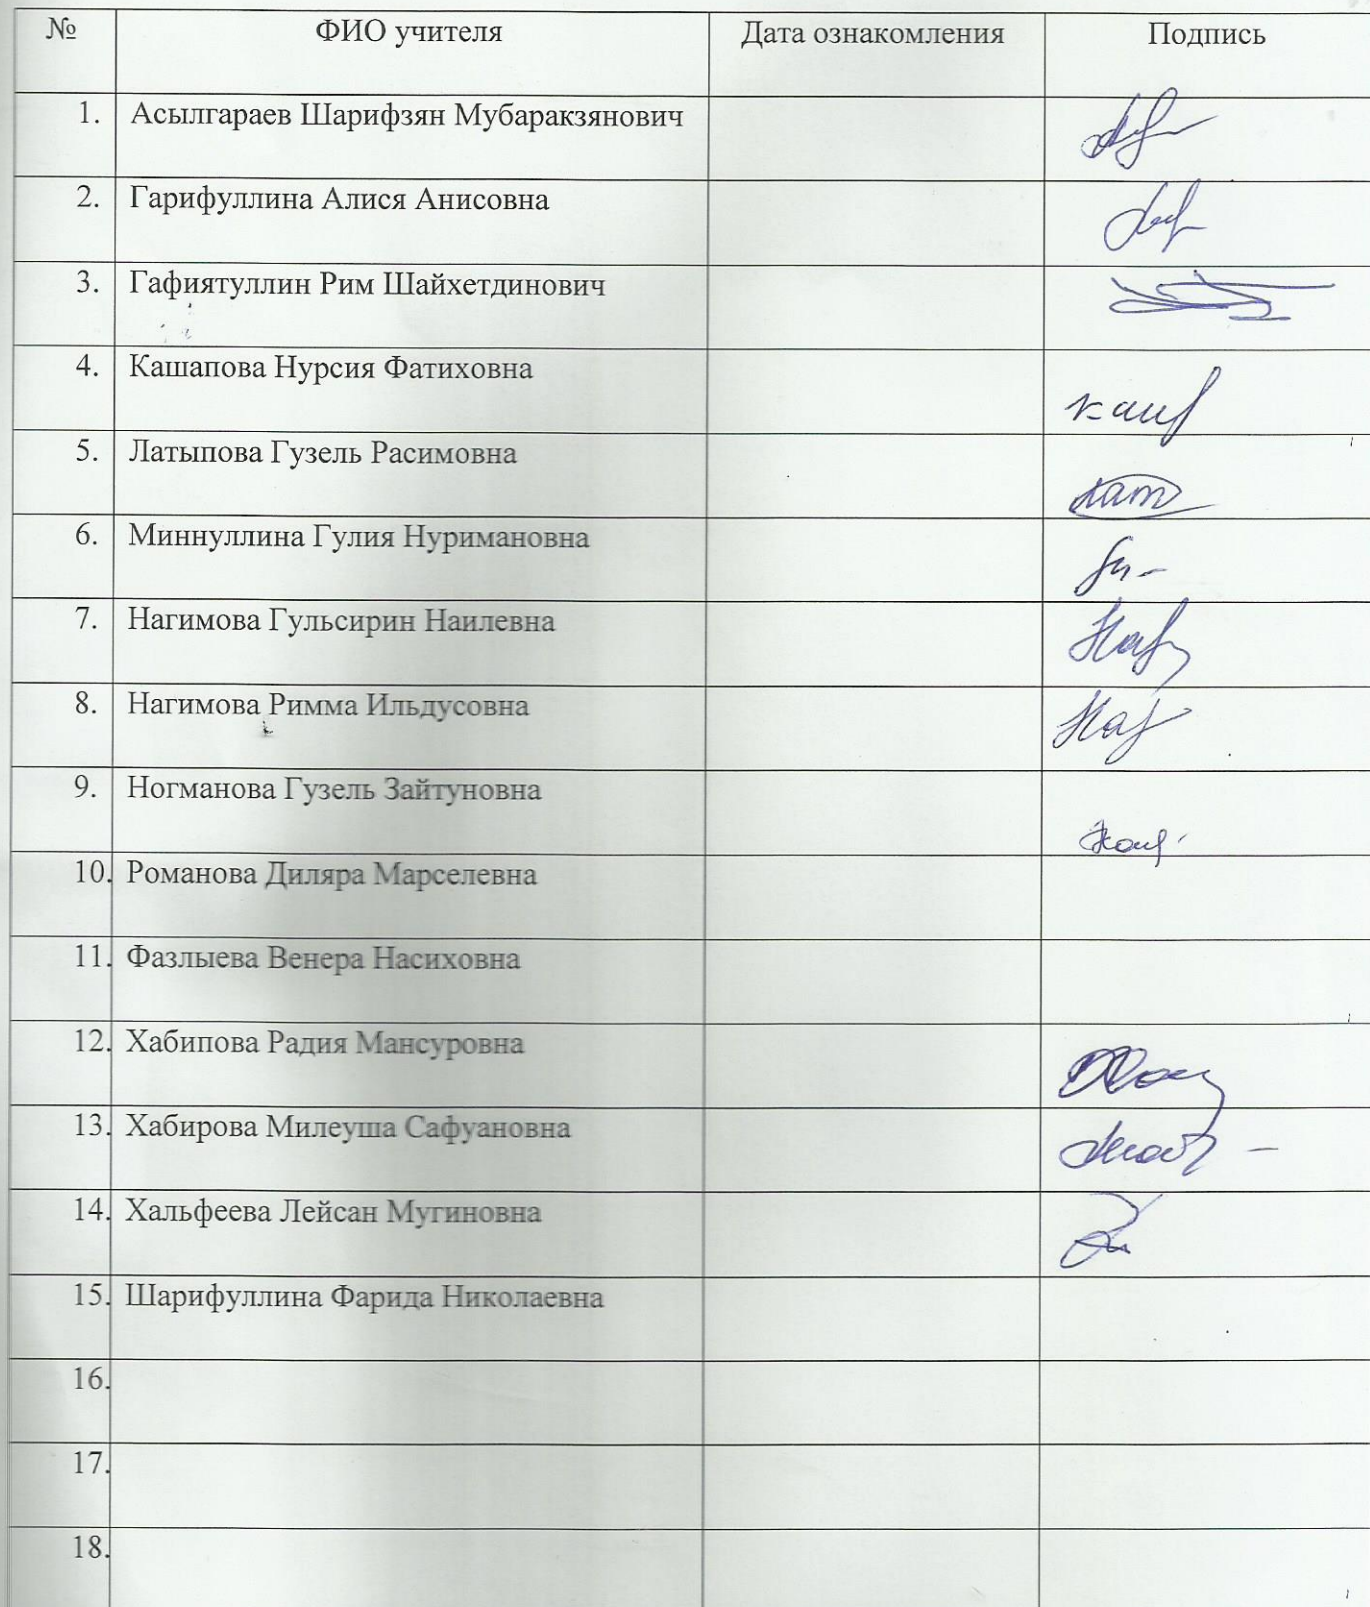 № ФИО учителя Дата ознакомления Подпись
1. Асылгараев Шарифзян Мубаракзянович
2. Гарифуллина Алися Анисовна
3. Гафиятуллин Рим Шайхетдинович
4. Кашапова Нурсия Фатиховна
5. Латыпова Гузель Расимовна
6. Миннуллина Гулия Нуримановна
7. Нагимова Гульсирин Наилевна
8. Нагимова Римма Ильдусовна
9. Ногманова Гузель Зайтуновна
10. Романова Диляра Марселевна
11. Фазлыева Венера Насиховна
12. Хабипова Радия Мансуровна
13. Хабирова Милеуша Сафуановна
14. Хальфеева Лейсан Мугиновна
15. Шарифуллина Фарида Николаевна
16.
17.
18.